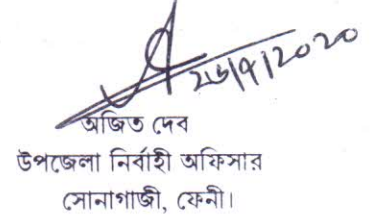 ২৬/৭/২০২০
অজিত দেব
উপজেলা নির্বাহী অফিসার
সোনাগাজী, ফেনী।